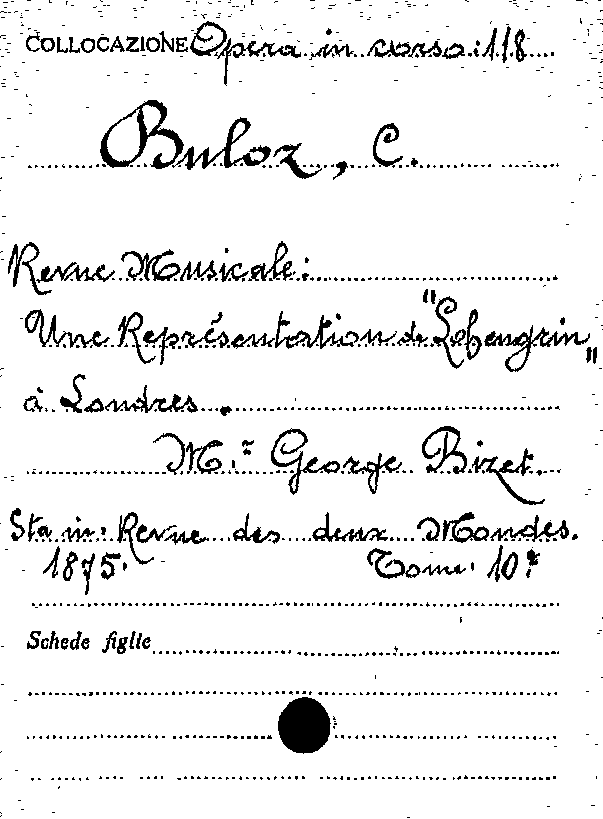 COLLOCAZIONE Opera in corso: 118
Buloz, C.
Revue Musicale:
Une Représentation de "Lohengrin"
à Londres.
M.r George Bizet.
Sta in: Revue des deux Mondes.
1875. Tome. 10°
Schede figlie